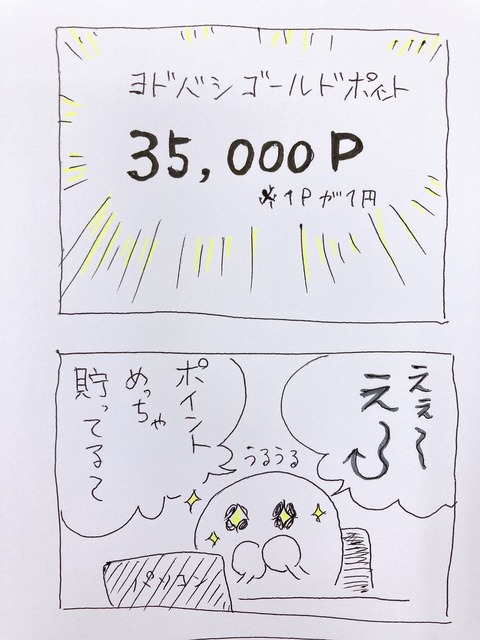 ヨドバシゴールドポイント
35,000P
※1Pが1円
ええ〜
え〜
うるうる
ポイント
めっちゃ
貯ってるて
パソコン